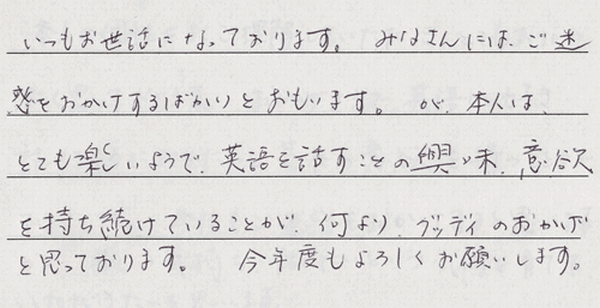 いつもお世話になっております。 みなさんには、ご迷
惑をおかけするばかりとおもいます。 が、本人は、
とても楽しいようで、英語を話すことの興味、意欲
を持ち続けていることが、何より、グッディのおかげ
と思っております。 今年度もよろしくお願いします。